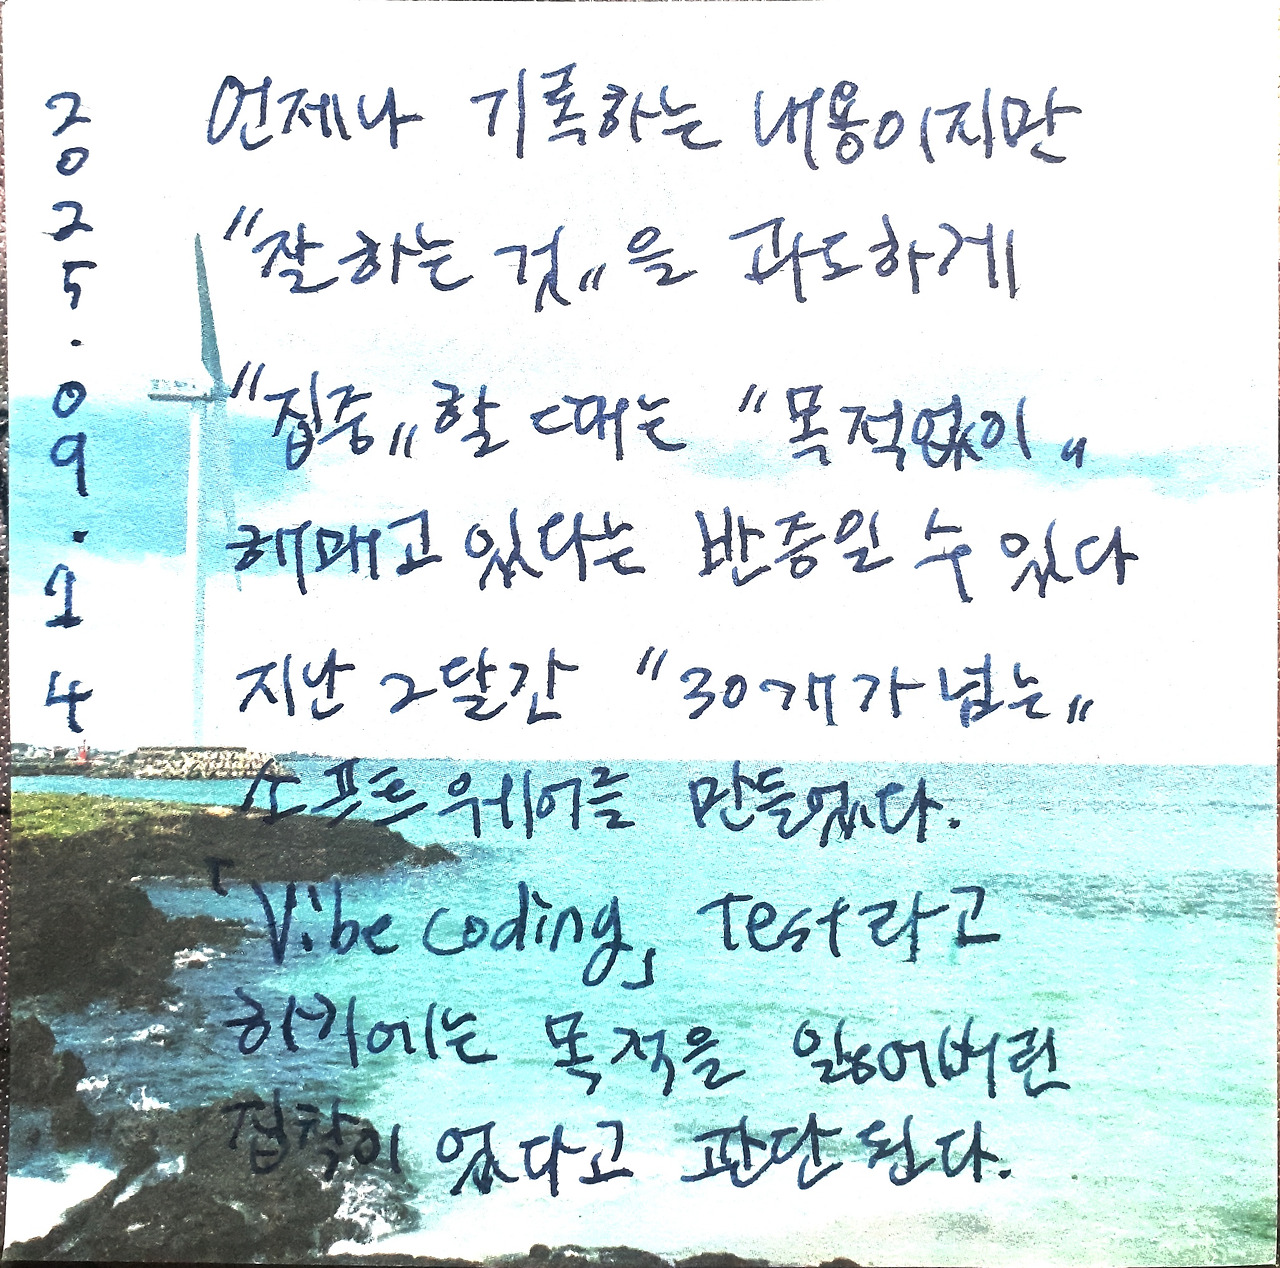 2025.09.14
언제나 기록하는 내용이지만
"잘하는 것"을 과도하게
"집중"할 때는 "목적없이"
헤매고 있다는 반증일 수 있다
지난 2달간 "30개가 넘는"
소프트웨어를 만들었다.
「Vibe coding」 Test라고
하기에는 목적을 잃어버린
집착이 었다고 판단된다.